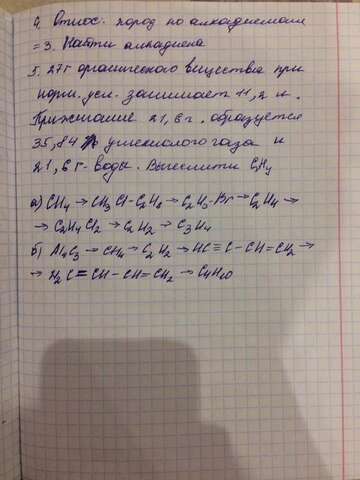 4. Относ. пород по алкадиенам
= 3. Найти алкадиена
5. 27 г органического вещества при
норм. усл. занимает 11,2 л.
При сжигание 21,6 г. образуется
35,84 л углекислого газа и
21,6 г воды. Вычислити CxHy
а) CH4 → CH3Cl - C2H6 → C2H5-Br → C2H4 →
→ C2H4Cl2 → C2H2 → C3H4
б) Al4C3 → CH4 → C2H2 → HC ≡ C - CH = CH2 →
→ H2C = CH - CH = CH2 → C4H10